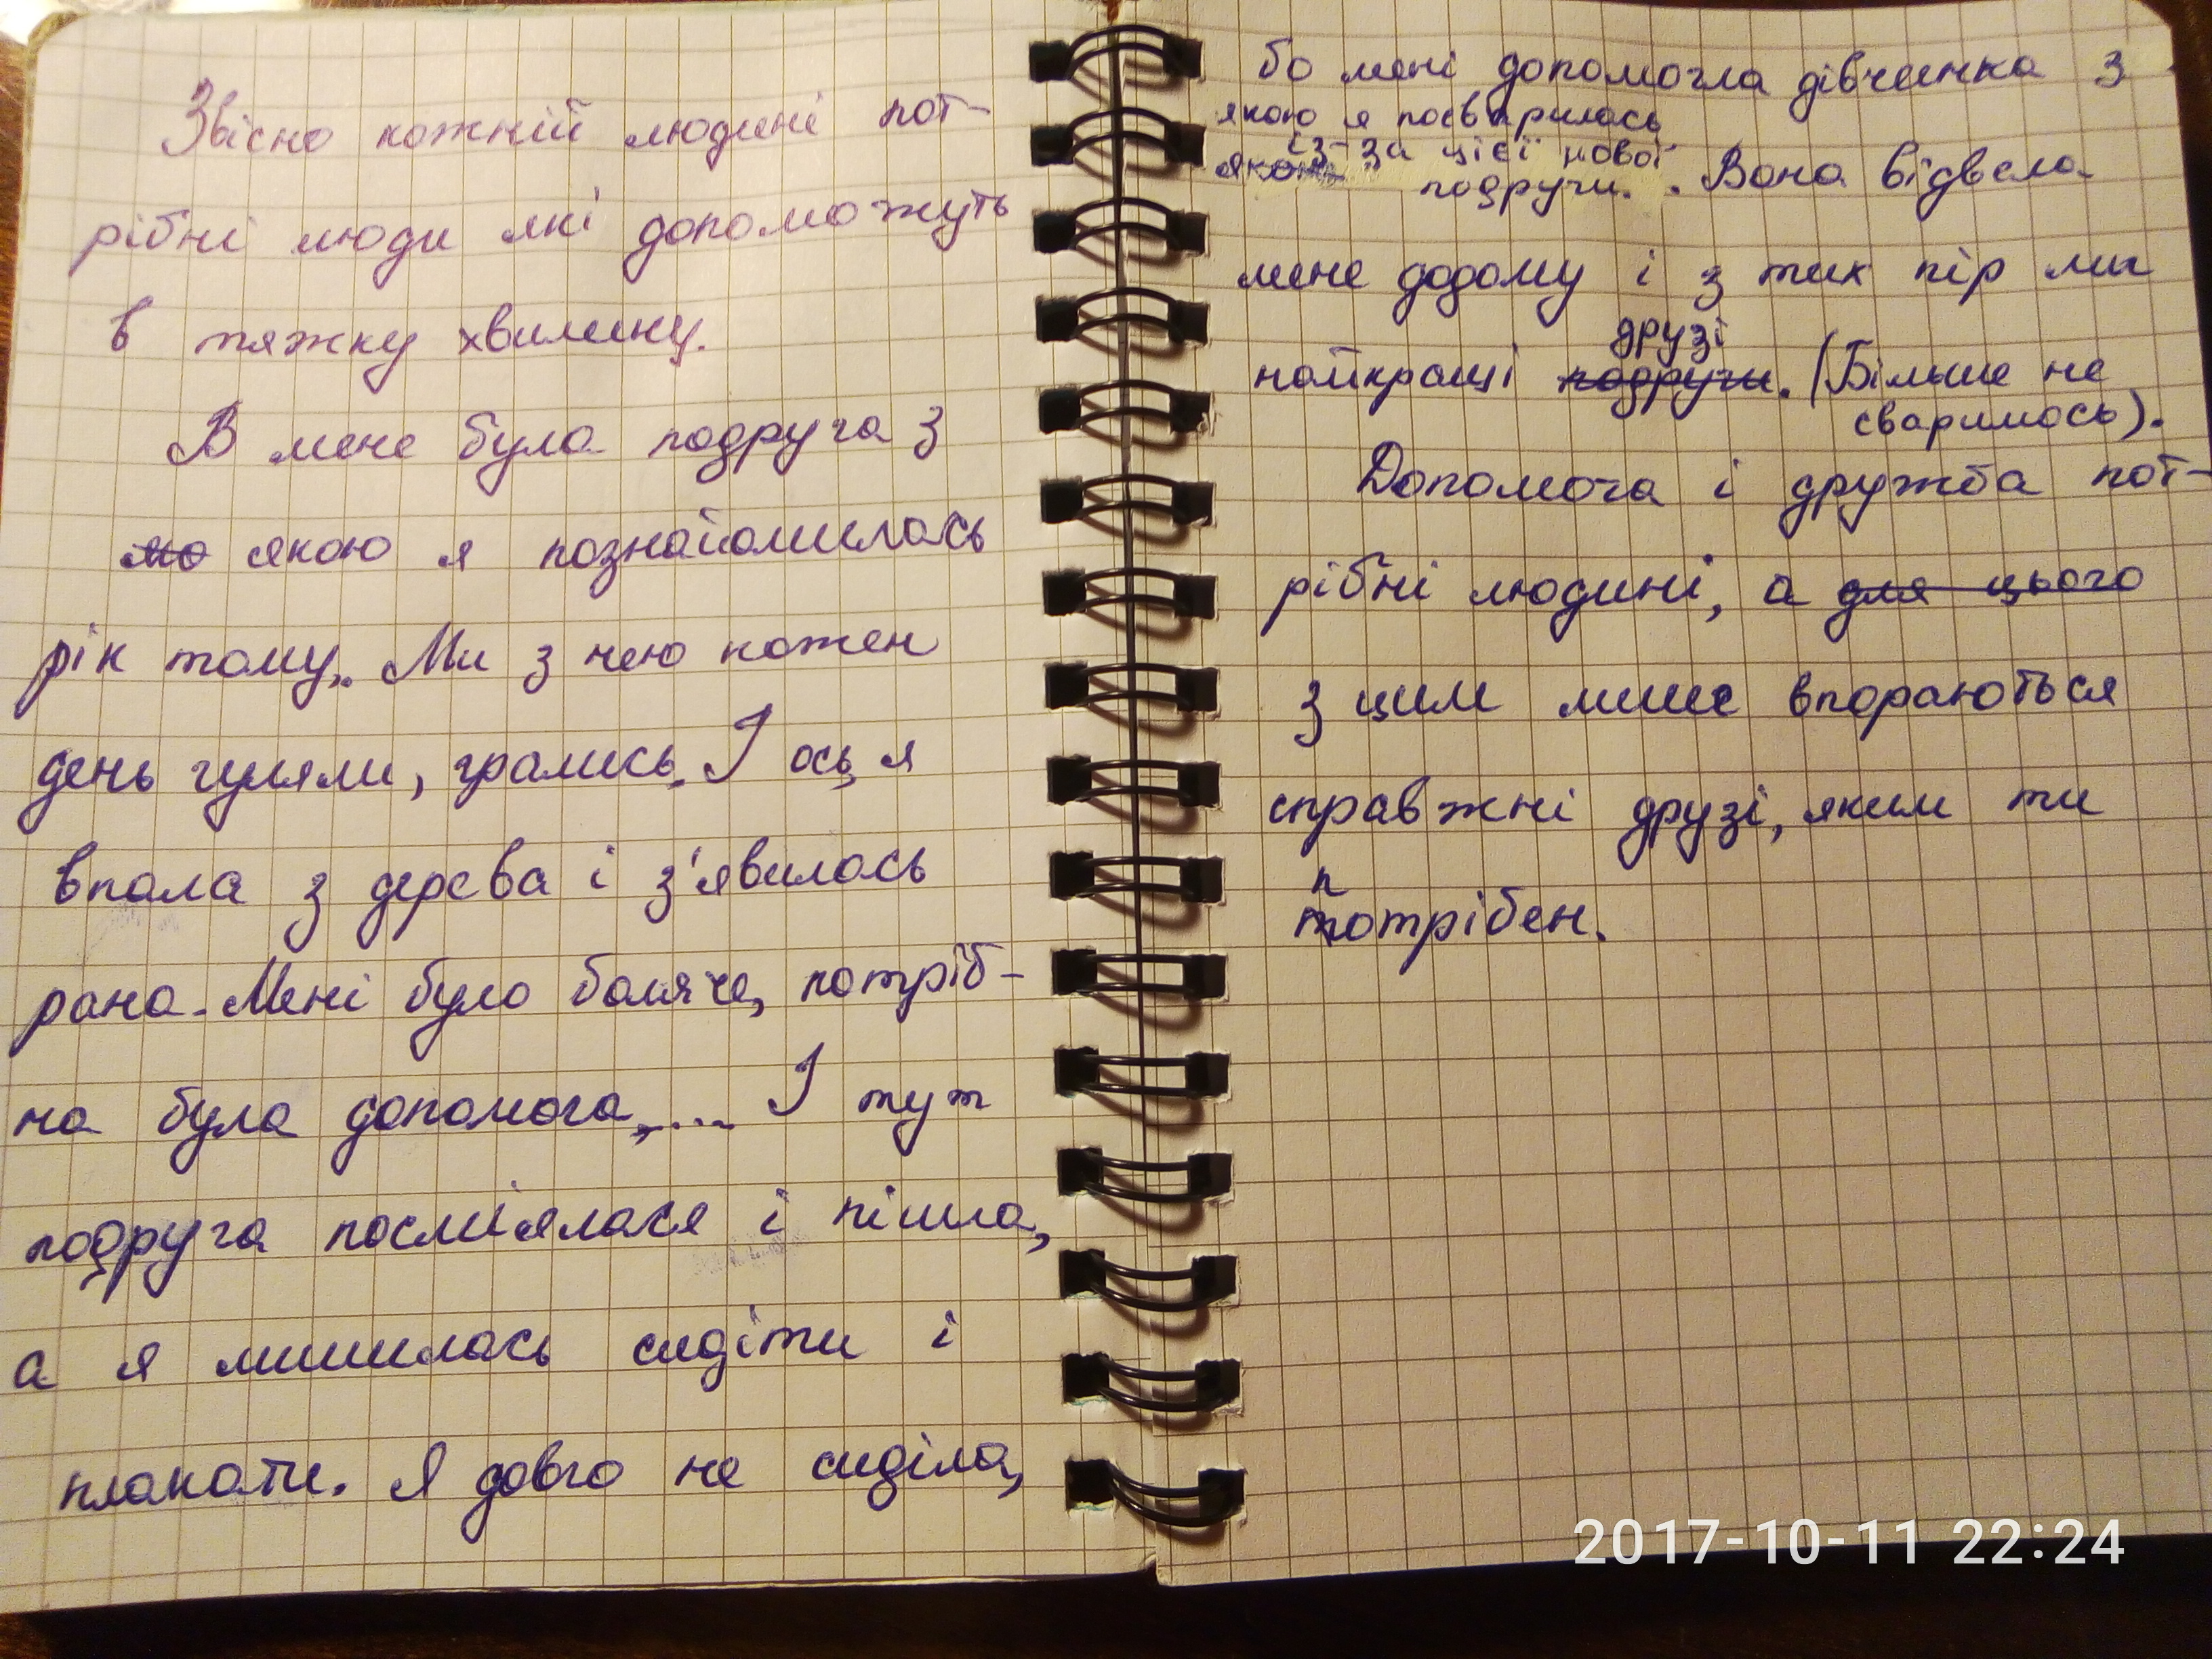 Звісно кожній людині пот-
рібні люди які допоможуть
в тяжку хвилину.
В мене була подруга з
якою я познайомилась
рік тому. Ми з нею кожен
день гуляли, грались. І ось я
впала з дерева і з'явилась
рана. Мені було боляче, потріб-
на була допомога,.... І тут
подруга посміялася і пішла,
а я лишилась сидіти і
плакати. Я довго не сиділа,
бо мені допомогла дівчинка з
якою я посварилась
із-за цієї нової
подруги. . Вона відвела
мене додому і з тих пір ми
друзі
найкращі подруги. (Більше не
сваримось).
Допомога і дружба пот-
рібні людині, а для цього
з цим лише впораються
справжні друзі, яким ти
п
потрібен.
2017-10-11 22:24